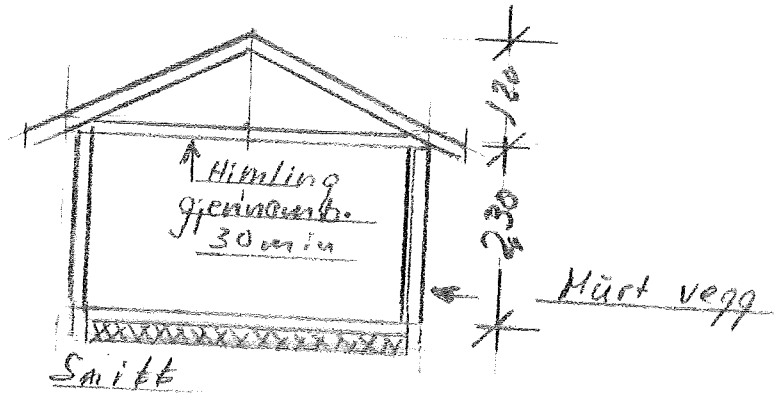 120
Himling
gjennomb.
30 min
230
Mürt vegg
Snitt